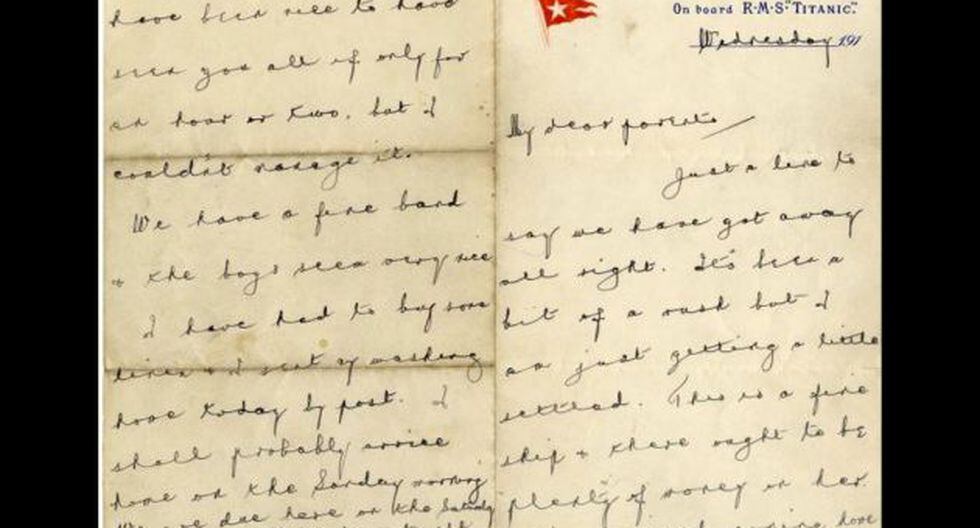 On board R·M·S "TITANIC."
Wednesday 191
My dear parents
Just a line to
say we have got away
all right. It's been a
bit of a rush but I
am just getting a little
settled. This is a fine
ship & there ought to be
plenty of money on her.
have been nice to have
seen you all if only for
an hour or two. but I
couldn't manage it.
We have a fine band
& the boys seem very nice
I have had to buy some
linen & I sent my washing
home today by post. I
shall probably arrive
home on the Sunday morning
We are due here on the Saturday